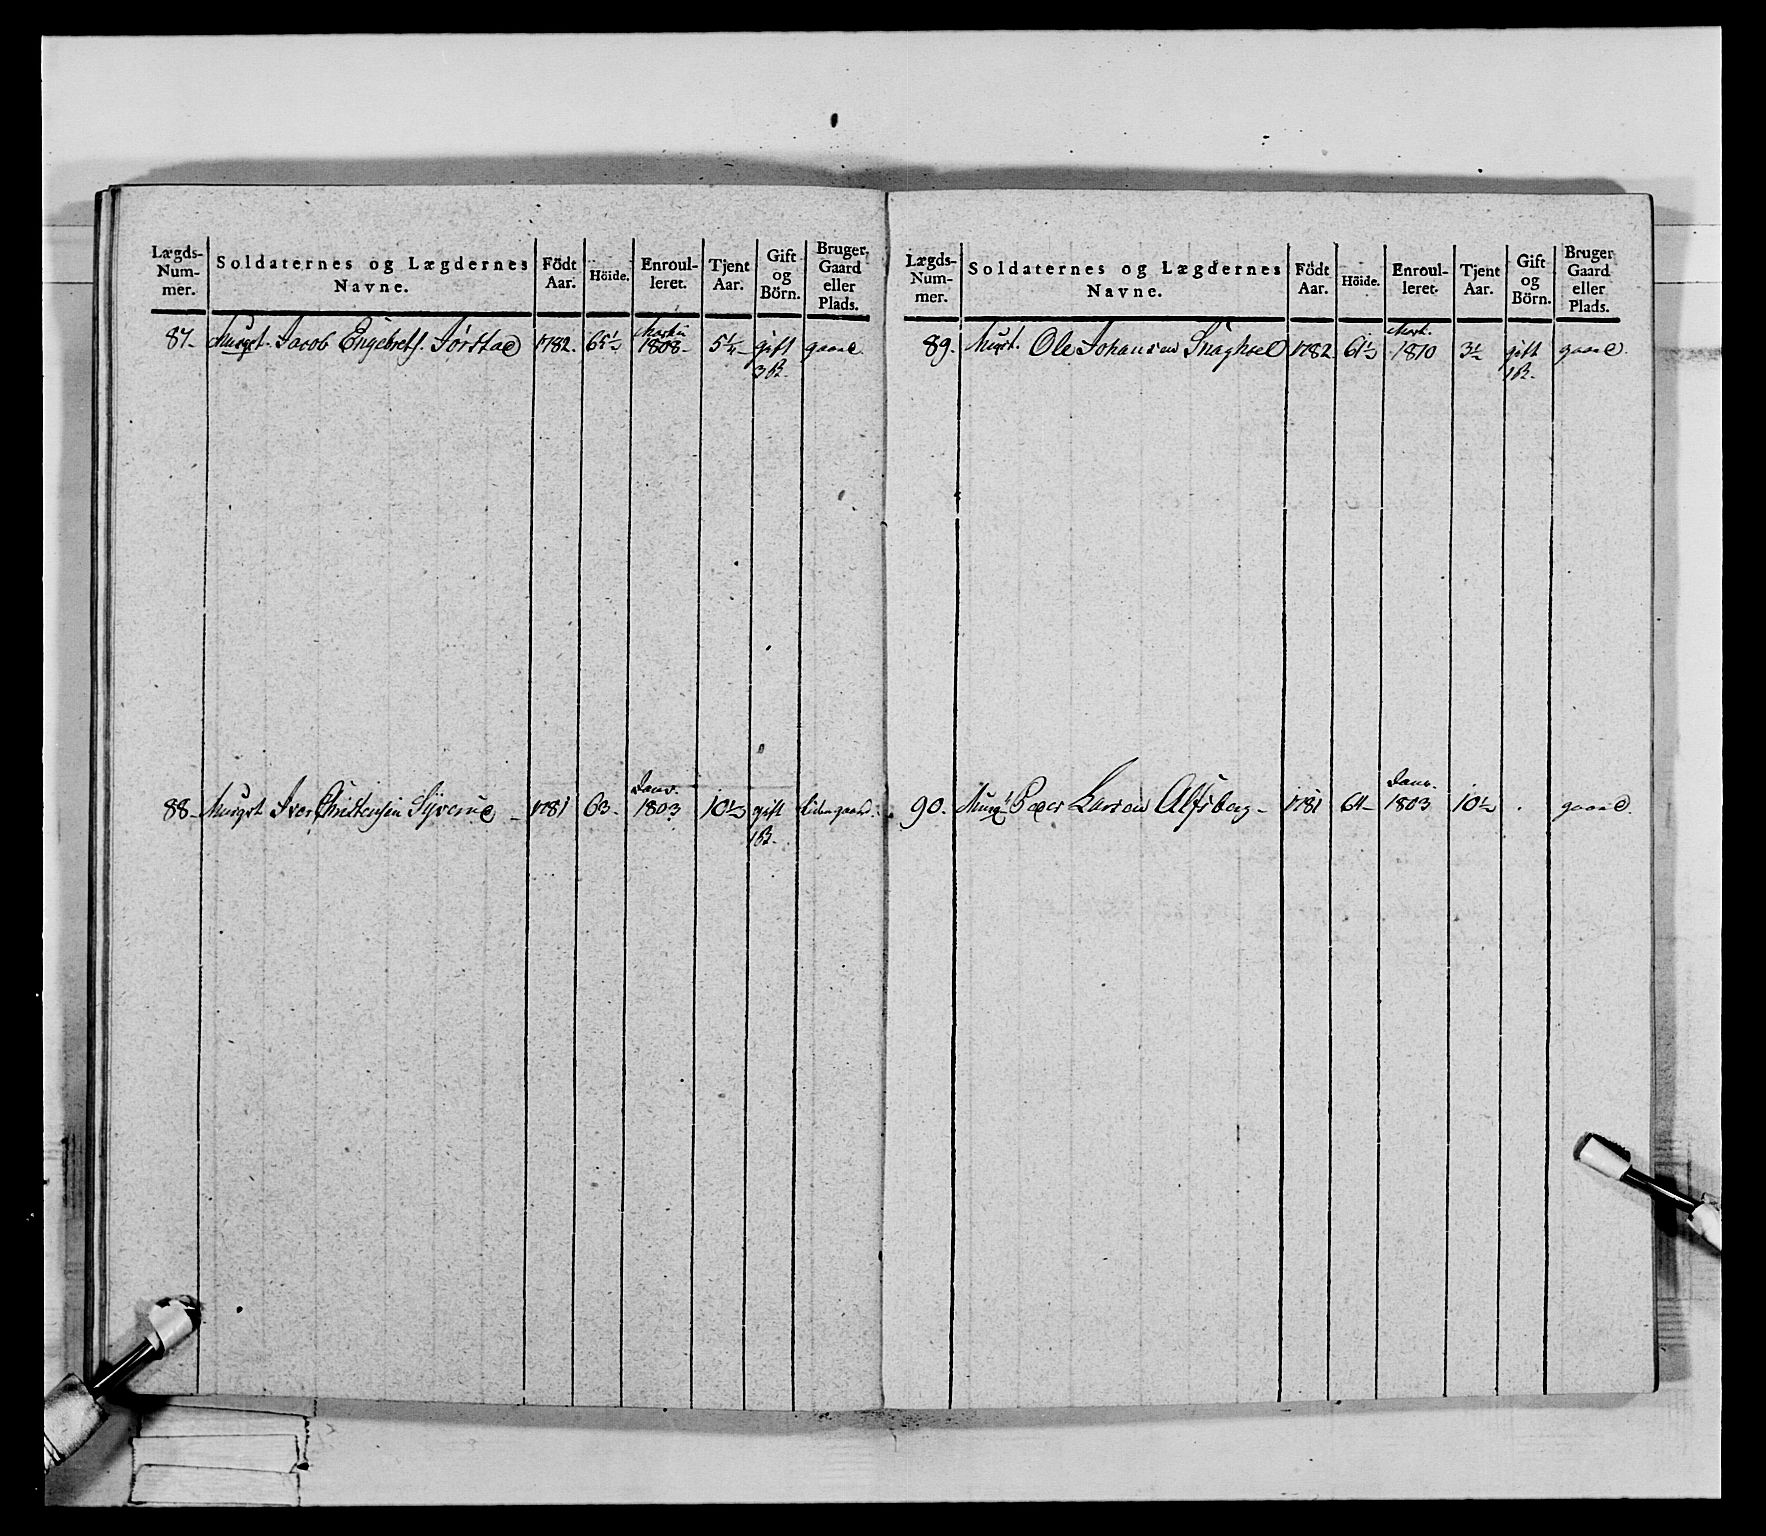 Lægds-
Num-
mer.
Soldaternes og Lægdernes
Navne.
Födt
Aar.
Höide.
Enroul-
leret.
Tjent
Aar.
Gift
og
Börn.
Bruger
Gaard
eller
Plads.
87. Musqt. Jacob Engebrets. Jörstad 1782. 65½ Martii 1808 5¼ gift gaard
3 B.
88 Musqt Iver Christensen 1781 63 Janv. 1803 10½ gift
1 B.
Lægds-
Num-
mer.
Soldaternes og Lægdernes
Navne.
Födt
Aar.
Höide.
Enroul-
leret.
Tjent
Aar.
Gift
og
Börn.
Bruger
Gaard
eller
Plads.
89. Musqt. Ole Johansen 1782 61½ Mart. 1810 3½ gift gaard.
1 B.
90. Musqt Peder Larsen Alfsberg 1781 61 Janv. 1803 10½ gaard.